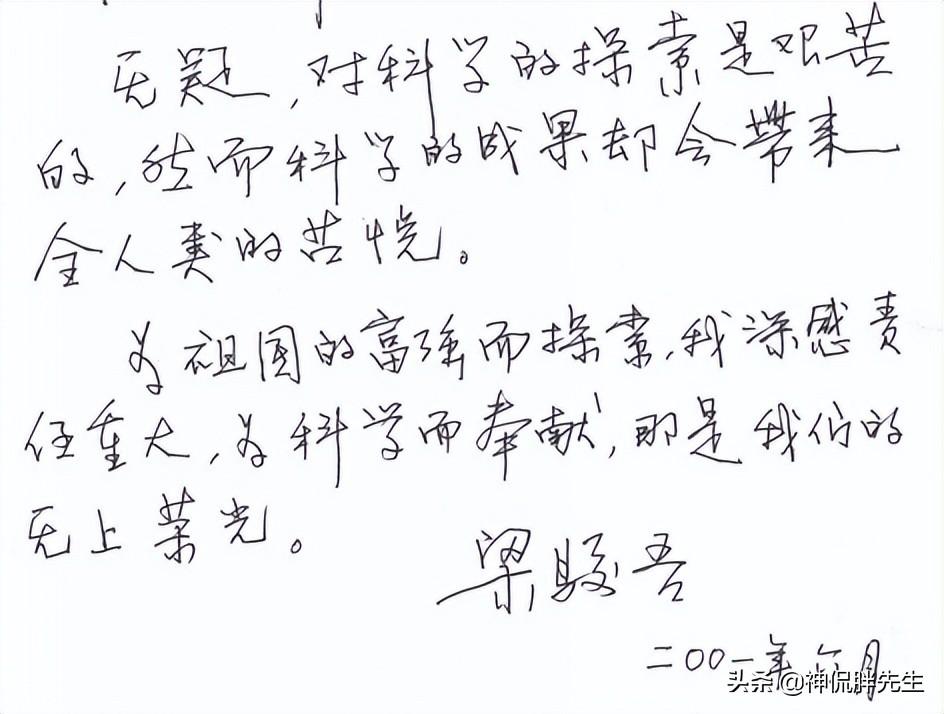 无疑，对科学的探索是艰苦
的，然而科学的成果却会带来
全人类的喜悦。
为祖国的富强而探索，我深感责
任重大，为科学而奉献，那是我们的
无上荣光。
梁骏吾
二00一年六月
头条 @神侃胖先生